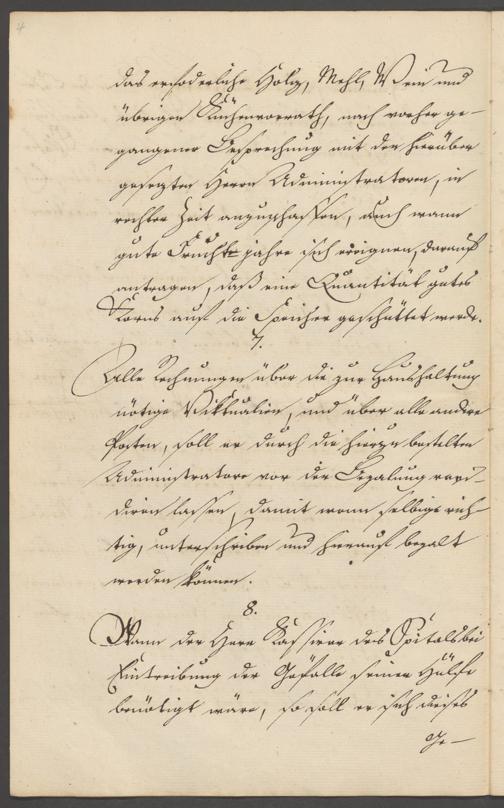 4
das erfoderliche Holz, Mehl, Wein und
übrigen Küchenvorrath, nach vorher ge-
gangener Besprechung mit den hierüber
gesezten Herrn Administratoren, in
rechter Zeit anzuschaffen, auch wann
gute Fruchtjahre sich ereignen, darauf
antragen, daß eine Quantität gutes
Korns auf die Speicher geschüttet werde.
7.
Alle Rechnungen über die zur Haushaltung
nötige Viktualien, und über alle andere
Posten, soll er durch die hierzu bestelten
Administratore vor der Bezalung revi-
diren lassen, damit wenn selbige rich-
tig, unterschrieben und hierauf bezalt
werden können.
8.
Wann der Herr Kassierer des Spitals bei
Eintreibung der Gefälle seiner Hülfe
benötigt wäre, so soll er sich dieses
Ge-